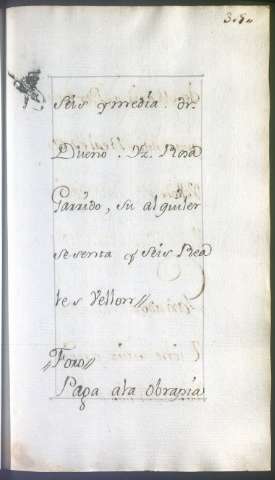 305
Seis y media. Dr.
Dueño. Dª. Rosa
Garrido, su alquiler
sesenta y seis Rea
les Vellon //
// Foro //
Paga ala obrapia